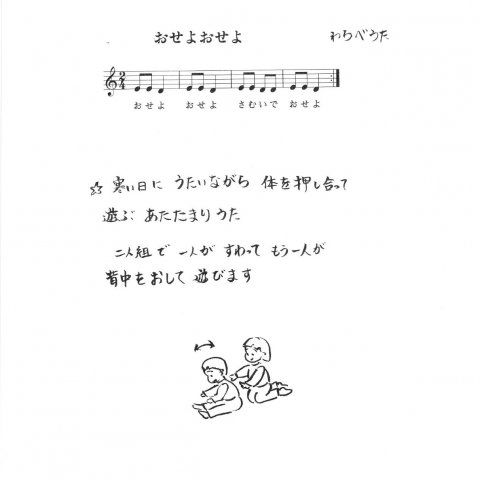 おせよおせよ わらべうた
おせよ おせよ さむいで おせよ
☆ 寒い日に うたいながら 体を押し合って
遊ぶ あたたまりうた
二人組で 一人が すわって もう一人が
背中をおして 遊びます